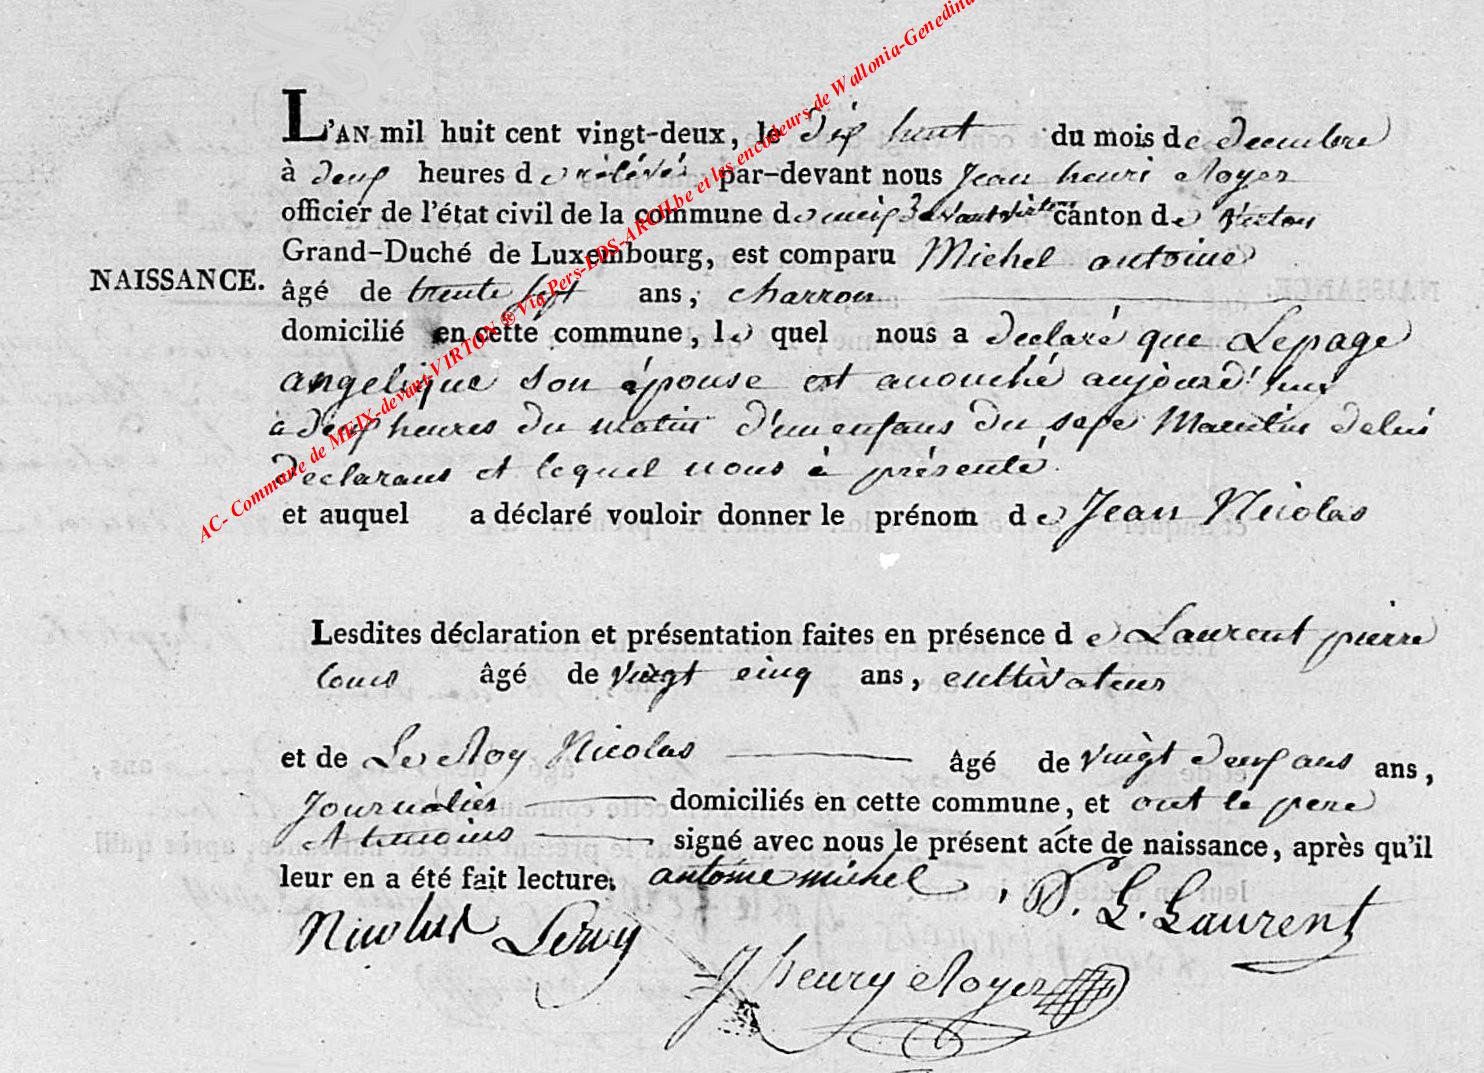 L'AN mil huit cent vingt-deux, le dix huit du mois de decembre
à deux heures de rélévés par-devant nous Jean henri Royer
officier de l'état civil de la commune de meix devant virton canton de virton
Grand-Duché de Luxembourg, est comparu Michel antoine
NAISSANCE.
âgé de trente sept ans, charron
domicilié en cette commune, le quel nous a declaré que Lepage
angelique son épouse est acouché aujourd'hui
à deux heures du matin d'un enfans du sexe Masculin de lui
declarans et lequel nous à présenté.
et auquel a déclaré vouloir donner le prénom de Jean Nicolas
Lesdites déclaration et présentation faites en présence de Laurent pierre
louis âgé de vingt cinq ans, cultivateur
et de Le Roy Nicolas âgé de vingt deux ans ans,
Journalier domiciliés en cette commune, et ont le pere
et temoins signé avec nous le présent acte de naissance, après qu'il
leur en a été fait lecture. antoine michel P. L. Laurent
Nicolas Leroy
J henry Royer
AC- Commune de MEIX-devant-VIRTON ® Via Pers-LDS-ARCH.be et les encodeurs de Wallonia-Genedina